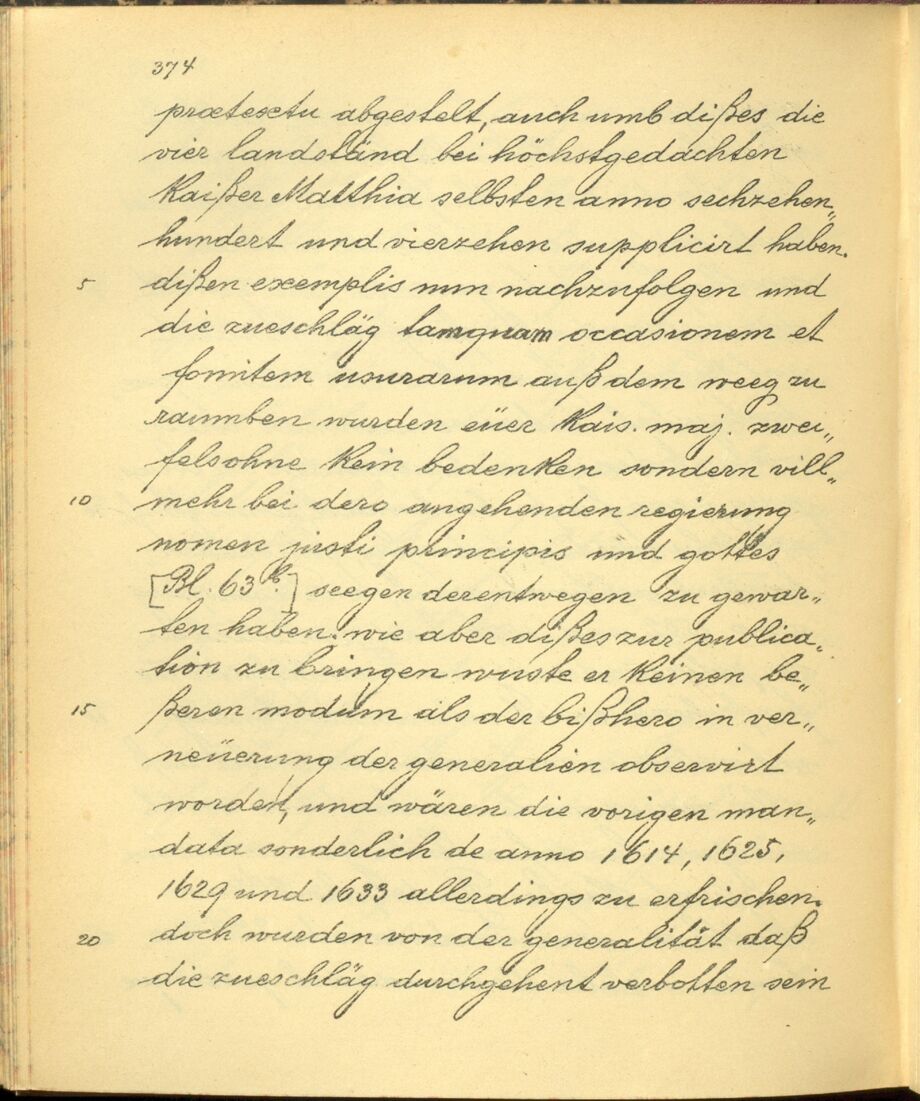 374
prætextu abgestelt, auch umb dißes die
vier landständ bei höchstgedachten
Kaißer Matthia selbsten anno sechzehen„
hundert und vierzehen supplicirt haben.
5 dißen exemplis nun nachzufolgen und
die zueschläg tamquam occasionem et
fomitem usurarum auß dem weeg zu
raumben wurden eüer Kais. maj. zwei„
felsohne Kein bedenKen sondern vill„
10 mehr bei dero angehenden regierung
nomen justi principis und gottes
[Bl. 63b.] seegen derentwegen zu gewar„
ten haben. wie aber dißes zur publica„
tion zu bringen wuste er Keinen be„
15 ßeren modum als der bißhero in ver„
neüerung der generalien observirt
worden, und wären die vorigen man„
data sonderlich de anno 1614, 1625,
1629 und 1633 allerdings zu erfrischen.
20 doch wurden von der generalität daß
die zueschläg durchgehent verbotten sein